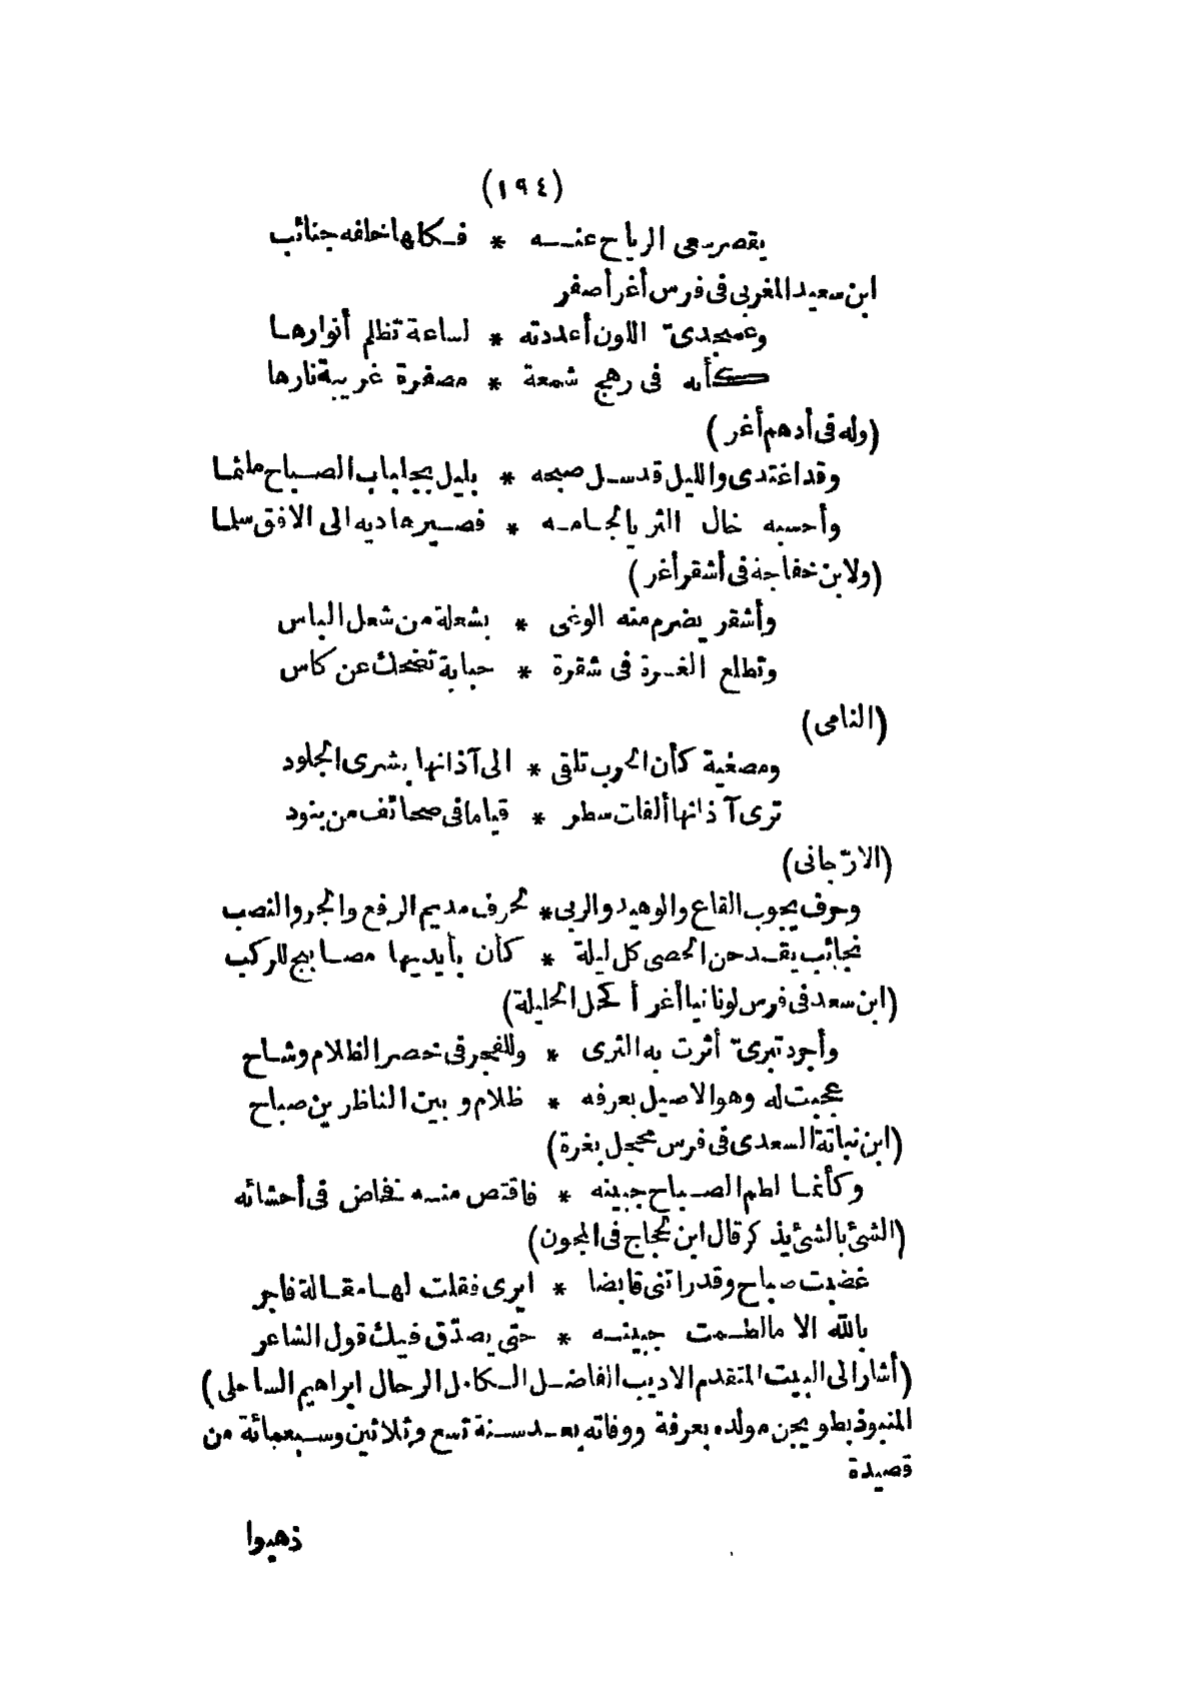 (١٩٤)
يقصر سعى الرياح عنـــه * فـكانها خلفه جنائب
ابن سعيد المغربى فى فرس أغر أصفر
وعسجدىّ اللون أعددته * لساعة تظلم أنوارهـا
كـأنه فى رهج شمعة * مصفرة غريبة نارها
(وله فى أدهم أغر)
وقد اغتدى والليل قدسـل صبحه * بليل بجلباب الصـباح ملثمـا
وأحسبه خال الثريا لجـامـه * فصـير هاديه الى الافق سلمـا
(ولابن خفاجة فى أشقر أغر)
وأشقر يضرم منه الوغى * بشعلة من شعل الباس
وتطلع الغـرة فى شقرة * حبابة تضحك عن كاس
(النامى)
ومصغية كأن الحرب تلقى * الى آذانها بشرى الجلود
ترى آذانها ألفات سطر * قياما فى صحائف من بنود
(الارّجانى)
وحرف يجوب القاع والوهيد والربى * لحرف مديم الرفع والجر والنصب
نجائب يقـدحن الحصى كل ليلة * كأن بأيديها مصـابيح للركب
(ابن سعد فى فرس لونانيا أغر أكحل الحليلة)
وأجرد تبرىّ أثرت به الثرى * وللفجر فى خصر الظلام وشـاح
عجبت له وهو الاصيل بعرفه * ظلام و بين الناظرين صباح
(ابن نباتة السعدى فى فرس محجل بغرة)
وكأنمـا لطم الصـباح جبينه * فاقتص منـه نخاض فى أحشائه
(الشئ بالشئ يذكر قال ابن حجاج فى المجون)
غضبت صباح وقد راتنى قابضا * ايرى فقلت لهـا مقـالة فاجر
بالله الا مالطـمت جبينـه * حتى يصدّق فيك قول الشاعر
(أشار الى البيت المتقدم الاديب الفاضـل الـكامل الرحال ابراهيم الساحلى)
المنبوذ بطويجن مولده بعرفة ووفاته بعـد سـنة تسع وثلاثين وسـبعمائة من
قصيدة
ذهبوا